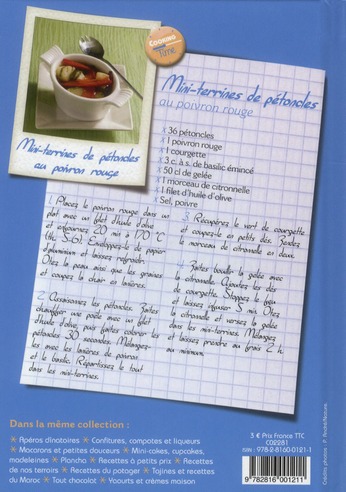 COOKING
Time
Mini-terrines de pétoncles
au poivron rouge
Mini-terrines de pétoncles
au poivron rouge
x 36 pétoncles
x 1 poivron rouge
x 1 courgette
x 3 c. à s. de basilic émincé
x 50 cl de gelée
x 1 morceau de citronnelle
x 1 filet d'huile d'olive
x Sel, poivre
1. Placez le poivron rouge dans un
plat avec un filet d'huile d'olive
et enfournez 20 min à 170 °C
(th. 5-6). Enveloppez-le de papier
d'aluminium et laissez refroidir.
Otez la peau ainsi que les graines
et coupez la chair en lanières.
2. Assaisonnez les pétoncles. Faites
chauffer une poêle avec un filet
d'huile d'olive, puis faites colorer les
pétoncles 30 secondes. Mélangez-
les avec les lanières de poivron
et le basilic. Répartissez le tout
dans les mini-terrines.
3. Récupérez le vert de courgette
et coupez-le en petits dés. Fendez
le morceau de citronnelle en deux.
4. Faites bouillir la gelée avec
la citronnelle. Ajoutez les dés
de courgette. Stoppez le feu
et laissez infuser 5 min. Otez
la citronnelle et versez la gelée
dans les mini-terrines. Mélangez
et laissez prendre au frais 2 h
au minimum.
Dans la même collection :
* Apéros dînatoires * Confitures, compotes et liqueurs
* Macarons et petites douceurs * Mini-cakes, cupcakes,
madeleines * Plancha * Recettes à petits prix * Recettes
de nos terroirs * Recettes du potager * Tajines et recettes
du Maroc * Tout chocolat * Yaourts et crèmes maison
3 € Prix France TTC
C02281
ISBN : 978-2-8160-0121-1
9 782816 001211
Crédits photos : P. Roche/Nature.